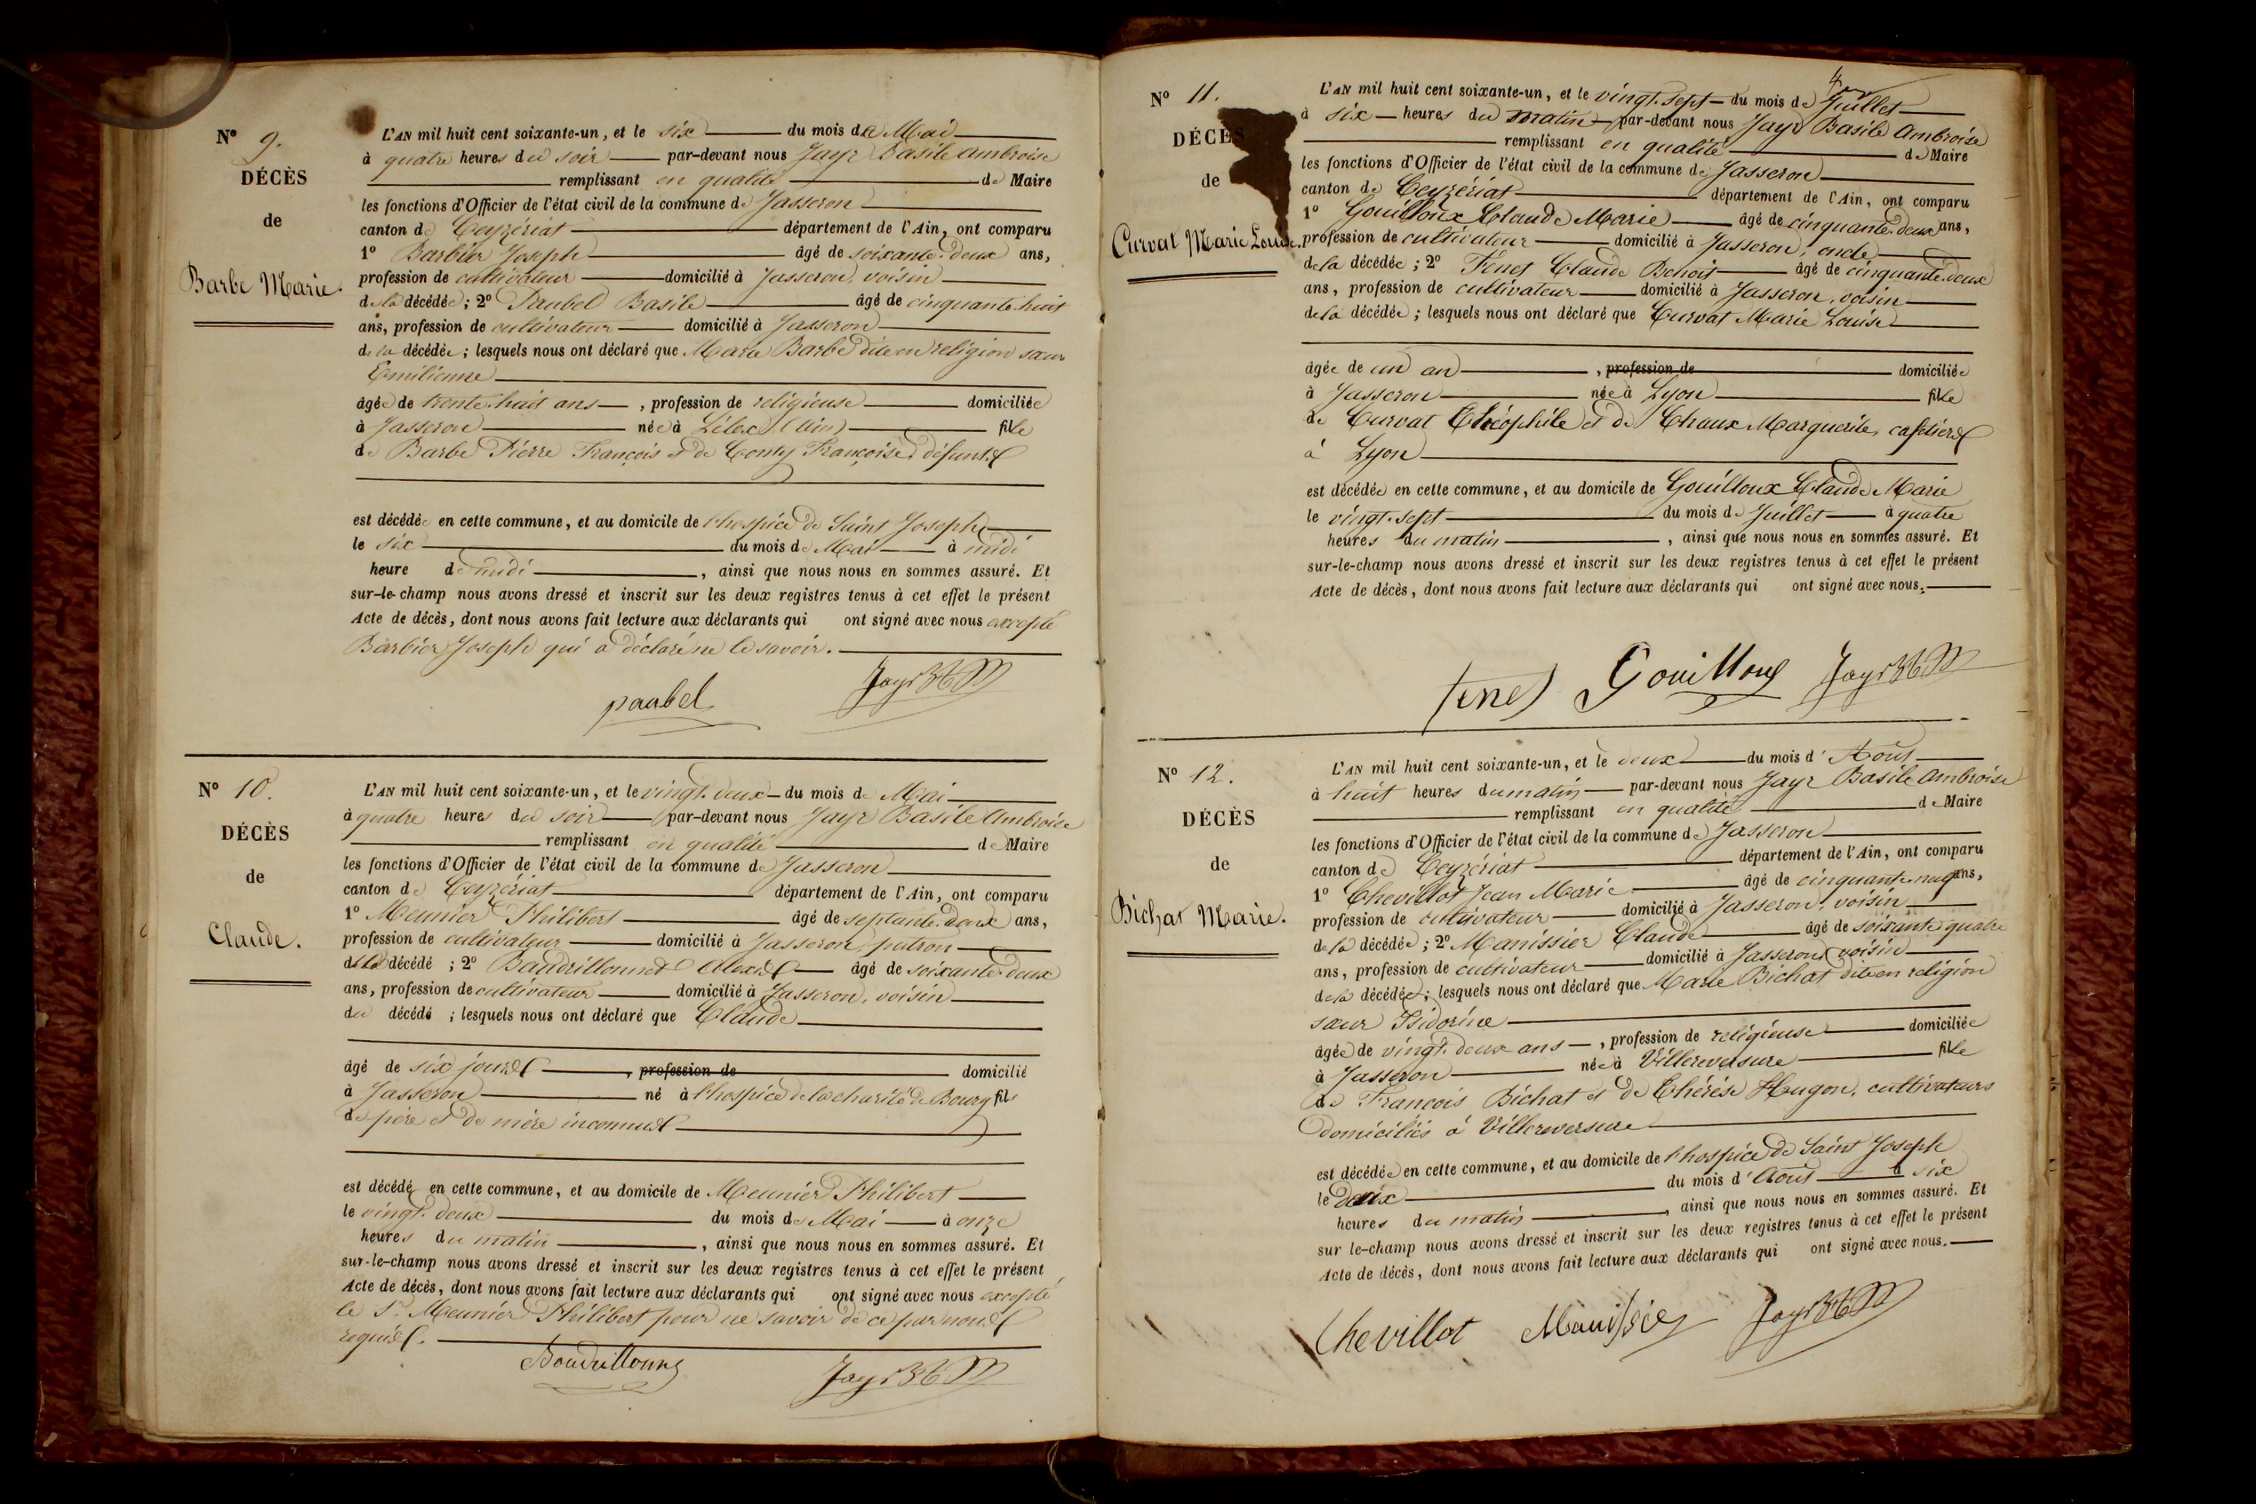 Nº 9.
DÉCÈS
de
Barbe Marie.
L'AN mil huit cent soixante-un, et le six du mois de Mai
à quatre heures du soir par-devant nous Jayr Basile Ambroise
remplissant en qualité de Maire
les fonctions d'Officier de l'état civil de la commune de Jasseron
canton de Ceyzériat département de l'Ain, ont comparu
1º Barbier Joseph âgé de soixante-deux ans,
profession de cultivateur domicilié à Jasseron, voisin
de la décédée ; 2º Paubel Basile âgé de cinquante-huit
ans, profession de cultivateur domicilié à Jasseron
de la décédée ; lesquels nous ont déclaré que Marie Barbe dite en religion sœur
Emilienne
âgée de trente-huit ans, profession de religieuse domiciliée
à Jasseron née à Lélex (Ain) fille
de Barbe Pierre François et de Conty Françoise, défunts
est décédée en cette commune, et au domicile de l'hospice de Saint Joseph
le six du mois de Mai à midi
heure de midi, ainsi que nous nous en sommes assuré. Et
sur-le-champ nous avons dressé et inscrit sur les deux registres tenus à cet effet le présent
Acte de décès, dont nous avons fait lecture aux déclarants qui ont signé avec nous excepté
Barbier Joseph qui a déclaré ne le savoir.
paubel Jayr
Nº 10.
DÉCÈS
de
Claude.
L'AN mil huit cent soixante-un, et le vingt-deux du mois de Mai
à quatre heures du soir par-devant nous Jayr Basile Ambroise
remplissant en qualité de Maire
les fonctions d'Officier de l'état civil de la commune de Jasseron
canton de Ceyzériat département de l'Ain, ont comparu
1º Meunier Philibert âgé de septante-deux ans,
profession de cultivateur domicilié à Jasseron, patron
du décédé ; 2º Baudrillonnet Alexis âgé de soixante-deux
ans, profession de cultivateur domicilié à Jasseron, voisin
du décédé ; lesquels nous ont déclaré que Claude
âgé de six jours, profession de domicilié
à Jasseron né à l'hospice de la charité de Bourg fils
de père et de mère inconnus
est décédé en cette commune, et au domicile de Meunier Philibert
le vingt-deux du mois de Mai à onze
heures du matin, ainsi que nous nous en sommes assuré. Et
sur-le-champ nous avons dressé et inscrit sur les deux registres tenus à cet effet le présent
Acte de décès, dont nous avons fait lecture aux déclarants qui ont signé avec nous excepté
le Sr Meunier Philibert pour ne savoir de ce par nous
requis.
Jayr
Nº 11.
DÉCÈS
de
Curvat Marie Louise.
L'AN mil huit cent soixante-un, et le vingt-sept du mois de Juillet
à six heures du matin par-devant nous Jayr Basile Ambroise
remplissant en qualité de Maire
les fonctions d'Officier de l'état civil de la commune de Jasseron
canton de Ceyzériat département de l'Ain, ont comparu
1º Gouilloux Claude Marie âgé de cinquante-deux ans,
profession de cultivateur domicilié à Jasseron, oncle
de la décédée ; 2º Fénet Claude Benoit âgé de cinquante-deux
ans, profession de cultivateur domicilié à Jasseron, voisin
de la décédée ; lesquels nous ont déclaré que Curvat Marie Louise
âgée de un an, profession de domiciliée
à Jasseron née à Lyon fille
de Curvat Théophile et de Chaux Marguerite, cafetiers
à Lyon
est décédée en cette commune, et au domicile de Gouilloux Claude Marie
le vingt-sept du mois de Juillet à quatre
heures du matin, ainsi que nous nous en sommes assuré. Et
sur-le-champ nous avons dressé et inscrit sur les deux registres tenus à cet effet le présent
Acte de décès, dont nous avons fait lecture aux déclarants qui ont signé avec nous.
fenet Gouilloux Jayr
Nº 12.
DÉCÈS
de
Bichat Marie.
L'AN mil huit cent soixante-un, et le deux du mois d'Août
à huit heures du matin par-devant nous Jayr Basile Ambroise
remplissant en qualité de Maire
les fonctions d'Officier de l'état civil de la commune de Jasseron
canton de Ceyzériat département de l'Ain, ont comparu
1º Chevillot Jean Marie âgé de cinquante-neuf ans,
profession de cultivateur domicilié à Jasseron, voisin
de la décédée ; 2º Manissier Claude âgé de soixante quatre
ans, profession de cultivateur domicilié à Jasseron, voisin
de la décédée ; lesquels nous ont déclaré que Marie Bichat dite en religion
sœur Isidorine
âgée de vingt-deux ans, profession de religieuse domiciliée
à Jasseron née à Villereversure fille
de François Bichat et de Thérèse Hugon, cultivateurs
domiciliés à Villereversure
est décédée en cette commune, et au domicile de l'hospice de Saint Joseph
le deux du mois d'Août à six
heures du matin, ainsi que nous nous en sommes assuré. Et
sur le-champ nous avons dressé et inscrit sur les deux registres tenus à cet effet le présent
Acte de décès, dont nous avons fait lecture aux déclarants qui ont signé avec nous.
Chevillot Manissier Jayr